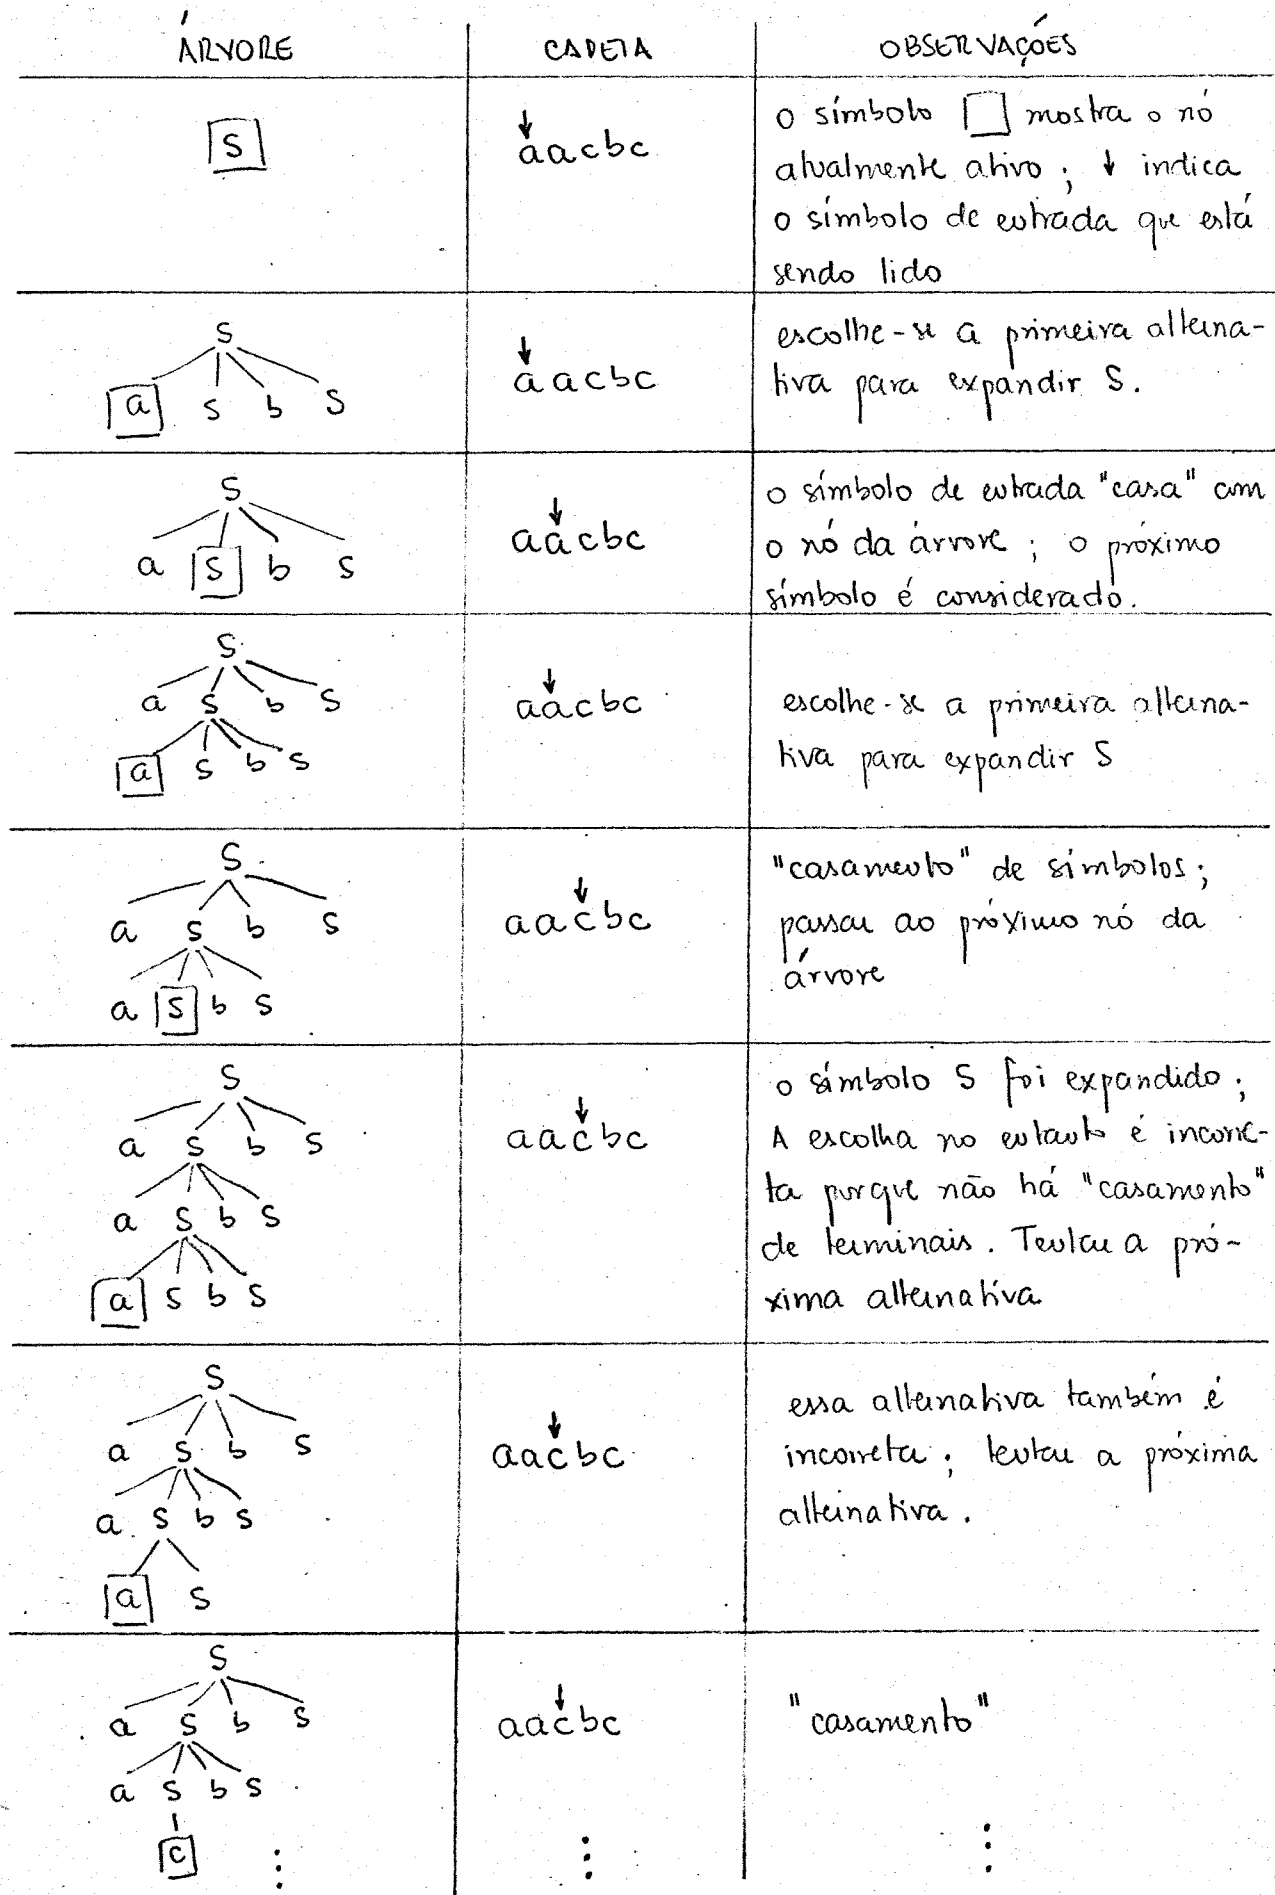 ÁRVORE CADEIA OBSERVAÇÕES
S
↓
aacbc
o símbolo □ mostra o nó
atualmente ativo; ↓ indica
o símbolo de entrada que está
sendo lido
S
a S b S
↓
aacbc
escolhe-se a primeira alterna-
tiva para expandir S.
S
a S b S
↓
aacbc
o símbolo de entrada "casa" com
o nó da árvore; o próximo
símbolo é considerado.
S
a S b S
a S b S
↓
aacbc
escolhe-se a primeira alterna-
tiva para expandir S
S
a S b S
a S b S
↓
aacbc
"casamento" de símbolos;
passar ao próximo nó da
árvore
S
a S b S
a S b S
a S b S
↓
aacbc
o símbolo S foi expandido;
A escolha no entanto é incorre-
ta porque não há "casamento"
de terminais. Tentar a pró-
xima alternativa
S
a S b S
a S b S
a S
↓
aacbc
essa alternativa também é
incorreta; tentar a próxima
alternativa.
S
a S b S
a S b S
c
↓
aacbc
"casamento"
⋮ ⋮ ⋮